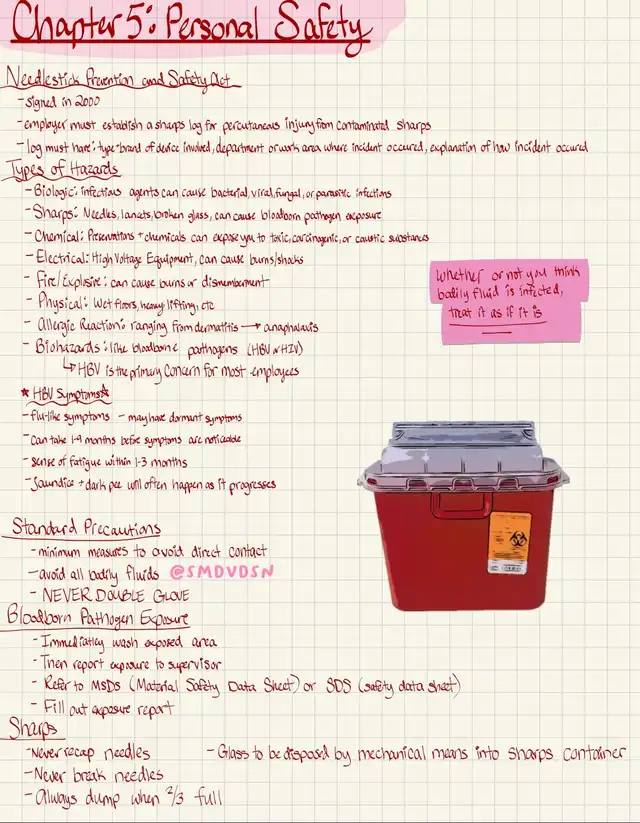 Chapter 5: Personal Safety
Needlestick Prevention and Safety Act
- signed in 2000
- employer must establish a sharps log for percutaneous injury from contaminated sharps
- log must have: type + brand of device involved, department or work area where incident occured, explanation of how incident occured
Types of Hazards
- Biologic: infectious agents can cause bacterial, viral, fungal, or parasitic infections
- Sharps: Needles, lancets, broken glass, can cause bloodborn pathogen exposure
- Chemical: Preservations + chemicals can expose you to toxic, carcinogenic, or caustic substances
- Electrical: High Voltage Equipment, can cause burns/shocks
- Fire/Explosive: can cause burns or dismemberment
- Physical: Wet floors, heavy lifting, etc
- Allergic Reaction: ranging from dermatitis → anaphalaxis
- Biohazards: like bloodborne pathogens (HBV or HIV)
↳ HBV is the primary concern for most employees
Whether or not you think
bodily fluid is infected,
treat it as if it is
★ HBV Symptoms ★
- flu-like symptoms - may have dormant symptoms
- Can take 1-9 months before symptoms are noticeable
- sense of fatigue within 1-3 months
- Jaundice + dark pee will often happen as it progresses
Standard Precautions
- minimum measures to avoid direct contact
- avoid all bodily fluids @SMDVDSN
- NEVER DOUBLE GLOVE
Bloodborn Pathogen Exposure
- Immediatley wash exposed area
- Then report exposure to supervisor
- Refer to MSDS (Material Safety Data Sheet) or SDS (safety data sheet)
- Fill out exposure report
Sharps
- Never recap needles - Glass to be disposed by mechanical means into sharps container
- Never break needles
- Always dump when 2/3 full